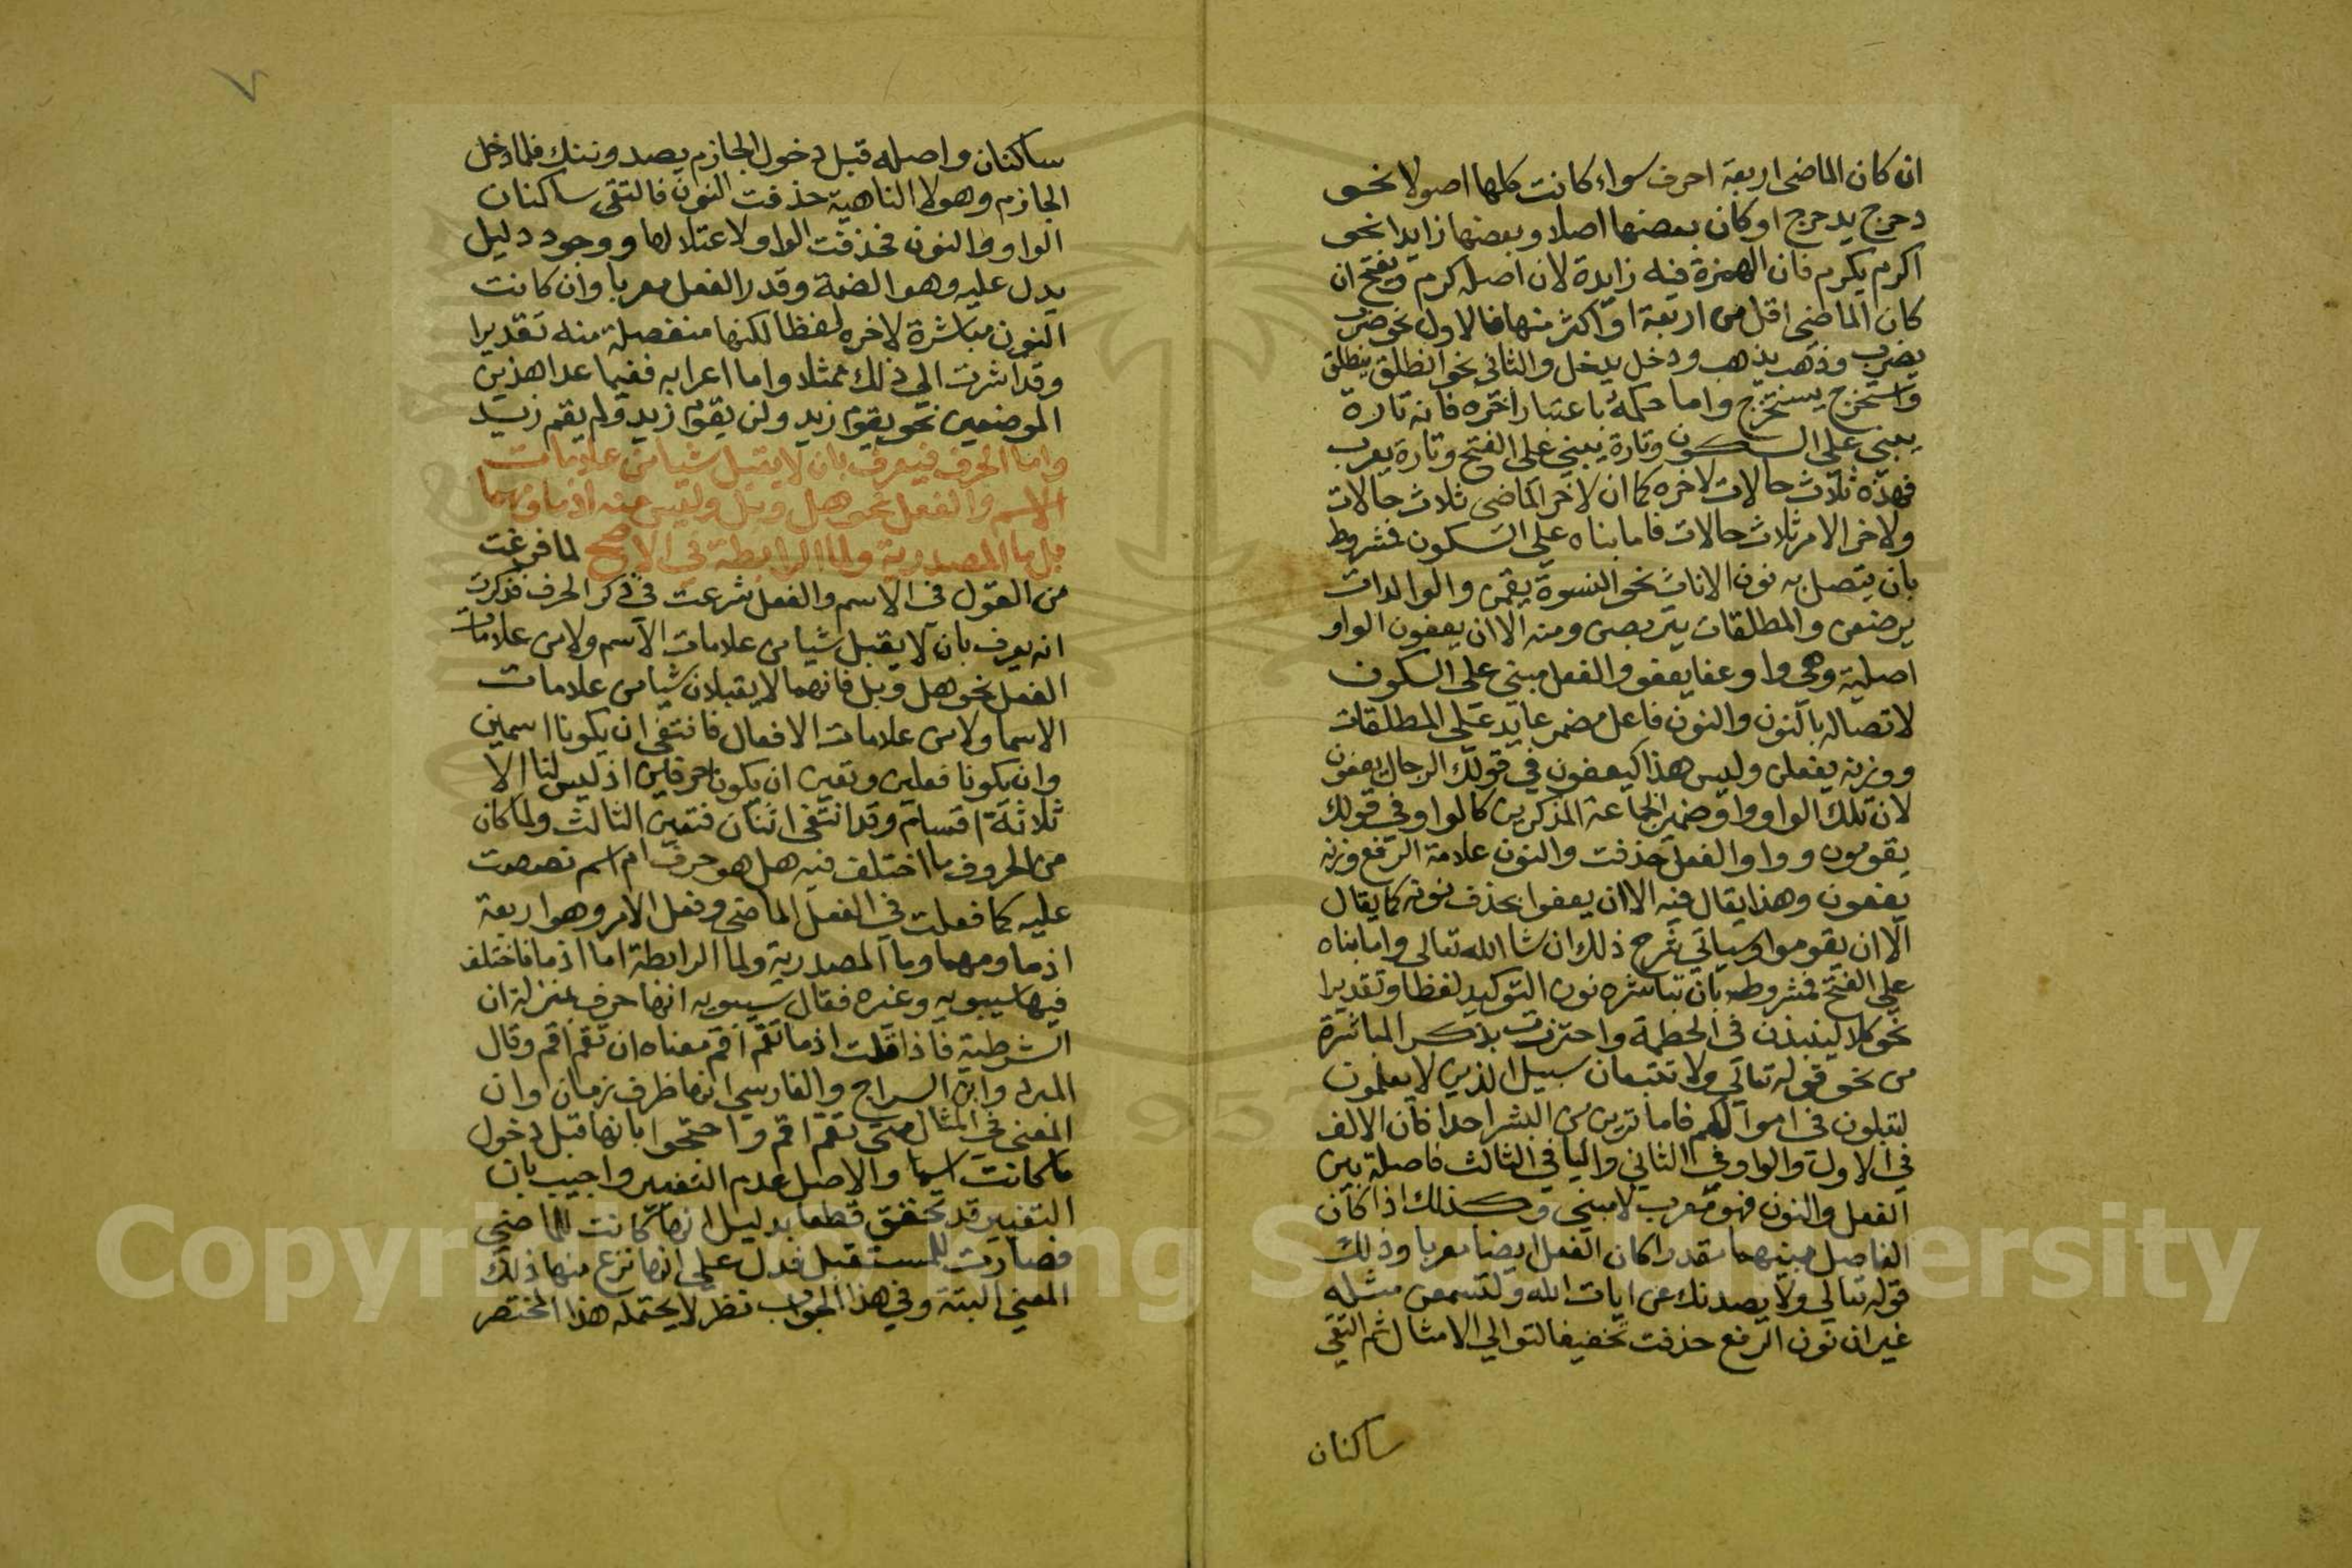 ان كان الماضى اربعة احرف سواء كانت كلها اصولا نحو
دحرج يدحرج او كان بعضها اصلا وبعضها زايدا نحو
اكرم يكرم فان الهمزة فيه زايدة لان اصله كرم ويفتح ان
كان الماضى اقل من اربعة او اكثر منها فالاول نحو ضرب
يضرب وذهب يذهب ودخل يدخل والثانى نحو انطلق ينطلق
واستخرج يستخرج واما حكمه باعتبار اخره فانه تارة
يبنى على السكون وتارة يبنى على الفتح وتارة يعرب
فهذه ثلاث حالات لاخره كما ان لاخر الماضى ثلاث حالات
ولاخر الامر ثلاث حالات فاما بناه على السكون فمشروط
بان يتصل به نون الاناث نحو النسوة يقمن والوالدات
يرضعن والمطلقات يتربصن ومنه الا ان يعفون الواو
اصلية وهى واو عفا يعفو والفعل مبنى على السكون
لاتصاله بالنون والنون فاعل مضمر عايد على المطلقات
ووزنه يفعلن وليس هذا كيعفون في قولك الرجال يعفون
لان تلك الواو واو ضمير الجماعة المذكرين كالواو في قولك
يقومون وواو الفعل حذفت والنون علامة الرفع وزنه
يفعون وهذا يقال فيه الا ان يعفوا بحذف نونه كما يقال
الا ان يقوموا وسياتي شرح ذلك ان شا الله تعالى واما بناه
على الفتح فمشروط بان تباشره نون التوكيد لفظا وتقديرا
نحو كلا لينبذن فى الحطمة واحترزت بذكر المباشرة
من نحو قوله تعالى ولا تتبعان سبيل الذين لا يعلمون
لتبلون فى اموالكم فاما ترين من البشر احدا فان الالف
في الاول والواو في الثاني واليا في الثالث فاصلة بين
الفعل والنون فهو معرب لا مبني وكذلك اذا كان
الفاصل بينهما مقدرا كان الفعل ايضا معربا وذلك
قوله تعالى ولا يصدنك عن ايات الله ولتسمعن مثله
غير ان نون الرفع حذفت تخفيفا لتوالي الامثال ثم التقى
ساكنان
٧
ساكنان واصله قبل دخول الجازم يصدوننك فلما دخل
الجازم وهو لا الناهية حذفت النون فالتقى ساكنان
الواو والنون فحذفت الواو لاعتلالها ووجود دليل
يدل عليه وهو الضمة وقدر الفعل معربا وان كانت
النون مباشرة لاخره لفظا لكنها منفصلة منه تقديرا
وقد اشرت الي ذلك ممثلا واما اعرابه ففيما عدا هذين
الموضعين نحو يقوم زيد ولن يقوم زيد ولم يقم زيد
واما الحرف فيعرف بان لا يقبل شيا من علامات
الاسم والفعل نحو هل وبل وليس منه اذما ومهما
بل ما المصدرية ولما الرابطة في الاصح لما فرغت
من القول فى الاسم والفعل شرعت في ذكر الحرف فذكرت
انه يعرف بان لا يقبل شيا من علامات الاسم ولا من علامات
الفعل نحو هل وبل فانهما لا يقبلان شيا من علامات
الاسما ولا من علامات الافعال فانتفى ان يكونا اسمين
وان يكونا فعلين وتعين ان يكونا حرفين اذ ليس لنا الا
ثلاثة اقسام وقد انتفى اثنان فتعين الثالث ولما كان
من الحروف ما اختلف فيه هل هو حرف ام اسم نصصت
عليه كما فعلت في الفعل الماضى وفعل الامر وهو اربعة
اذما ومهما وما المصدرية ولما الرابطة اما اذما فاختلف
فيها سيبويه وغيره فقال سيبويه انها حرف بمنزلة ان
الشرطية فاذا قلت اذما تقم اقم معناه ان تقم اقم وقال
المبرد وابن السراج والفارسي انها ظرف زمان وان
المعنى في المثال متى تقم اقم واحتجوا بانها قبل دخول
ما كانت اسما والاصل عدم التغيير واجيب بان
التغيير قد تحقق قطعا بدليل انها كانت للماضى
فصارت للمستقبل فدل على انها نزع منها ذلك
المعنى البتة وفي هذا الجواب نظر لا يحتمله هذا المختصر
Copyright © King Saud University
1957